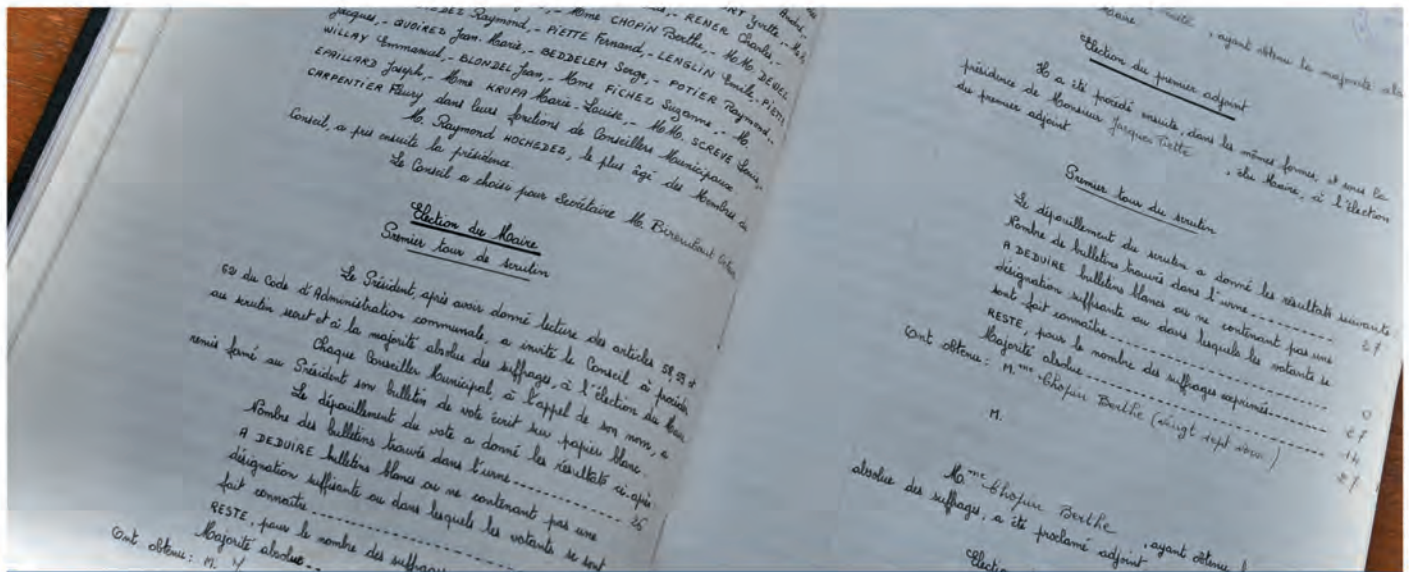 RT Yvette, - M.
- RENER Charles, -
- Mme CHOPIN Berthe, - M.M. DEWEL
DEZ Raymond, - PIETTE Fernand, - LENGLIN Emile, - PIETTE
Jacques, - QUOIREZ Jean-Marie, - BEDDELEM Serge, - POTIER Raymond, -
WILLAY Emmanuel, - BLONDEL Jean, - Mme FICHEZ Suzanne, - M.
EPAILLARD Joseph, - Mme KRUPA Marie-Louise, - M.M. SCREVE Louis, -
CARPENTIER Fleury, dans leurs fonctions de Conseillers Municipaux.
M. Raymond HOCHEDEZ, le plus âgé des Membres du
Conseil, a pris ensuite la présidence.
Le Conseil a choisi pour Secrétaire M. Birembaut
Election du Maire
Premier tour de scrutin
Le Président, après avoir donné lecture des articles 58, 59 et
62 du Code d'Administration communale, a invité le Conseil à procéder
au scrutin secret et à la majorité absolue des suffrages, à l'élection du Maire
Chaque Conseiller Municipal, à l'appel de son nom, a
remis fermé au Président son bulletin de vote écrit sur papier blanc.
Le dépouillement du vote a donné les résultats ci-après
Nombre des bulletins trouvés dans l'urne 26
A DEDUIRE bulletins blancs ou ne contenant pas une
désignation suffisante ou dans lesquels les votants se sont
fait connaître
RESTE, pour le nombre des suffrag
Majorité absolue
Ont obtenu: M.
, ayant obtenu la majorité abs
Election du premier adjoint
Il a été procédé ensuite, dans les mêmes formes, et sous la
présidence de Monsieur Jacques Piette, élu Maire, à l'élection
du premier adjoint
Premier tour du scrutin
Le dépouillement du scrutin a donné les résultats suivants:
Nombre de bulletins trouvés dans l'urne 27
A DEDUIRE bulletins blancs ou ne contenant pas une
désignation suffisante ou dans lesquels les votants se
sont fait connaître 0
RESTE, pour le nombre des suffrages exprimés 27
Majorité absolue 14
Ont obtenu: M.me Chopin Berthe (vingt sept voix) 27
M.
M.me Chopin Berthe, ayant obtenu l
absolue des suffrages, a été proclamé adjoint
Electio